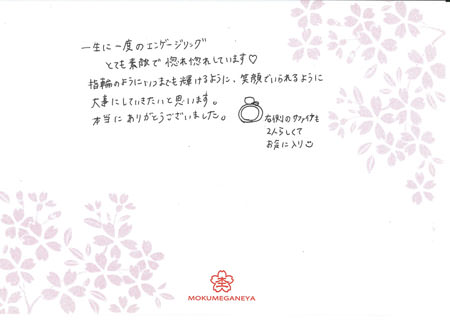 一生に一度のエンゲージリング
とても素敵で惚れ惚れしています♡
指輪のようにいつまでも輝けるように、笑顔でいられるように
大事にしていきたいと思います。
本当にありがとうございました。
右側のサファイヤも
2人らしくて
お気に入り
MOKUMEGANEYA